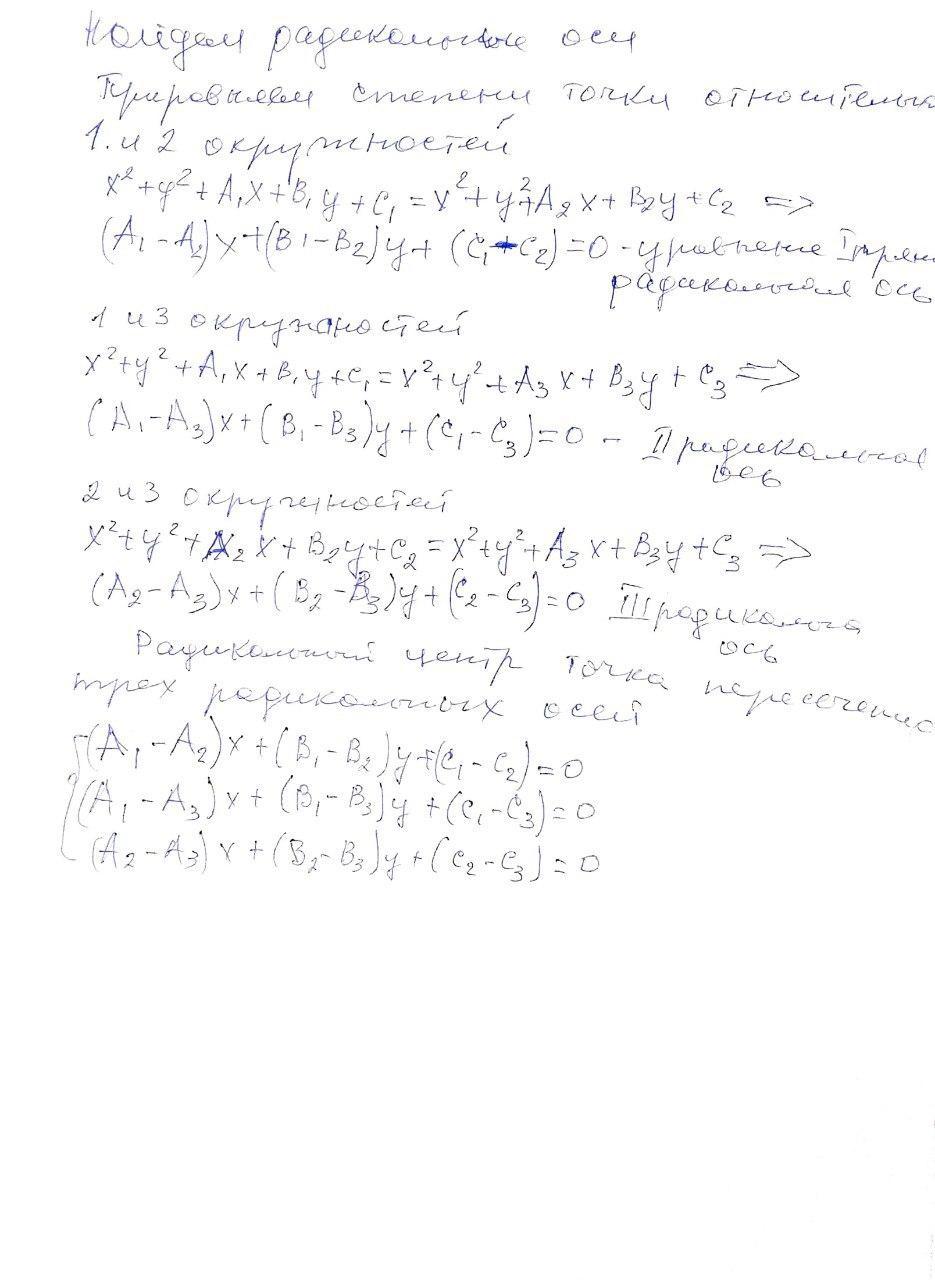 Найдем радикальные оси
Приравняем степени точки относительн
1. и 2 окружностей
x² + y² + A₁x + B₁y + C₁ = x² + y² + A₂x + B₂y + C₂ =>
(A₁ - A₂)x + (B₁ - B₂)y + (C₁ - C₂) = 0 - уравнение I прям
радикальная ось
1 и 3 окружностей
x² + y² + A₁x + B₁y + C₁ = x² + y² + A₃x + B₃y + C₃ =>
(A₁ - A₃)x + (B₁ - B₃)y + (C₁ - C₃) = 0 - II радикальная
ось
2 и 3 окружностей
x² + y² + A₂x + B₂y + C₂ = x² + y² + A₃x + B₃y + C₃ =>
(A₂ - A₃)x + (B₂ - B₃)y + (C₂ - C₃) = 0 III радикальна
ось
Радикальный центр точка пересечения
трех радикальных осей
(A₁ - A₂)x + (B₁ - B₂)y + (C₁ - C₂) = 0
(A₁ - A₃)x + (B₁ - B₃)y + (C₁ - C₃) = 0
(A₂ - A₃)x + (B₂ - B₃)y + (C₂ - C₃) = 0